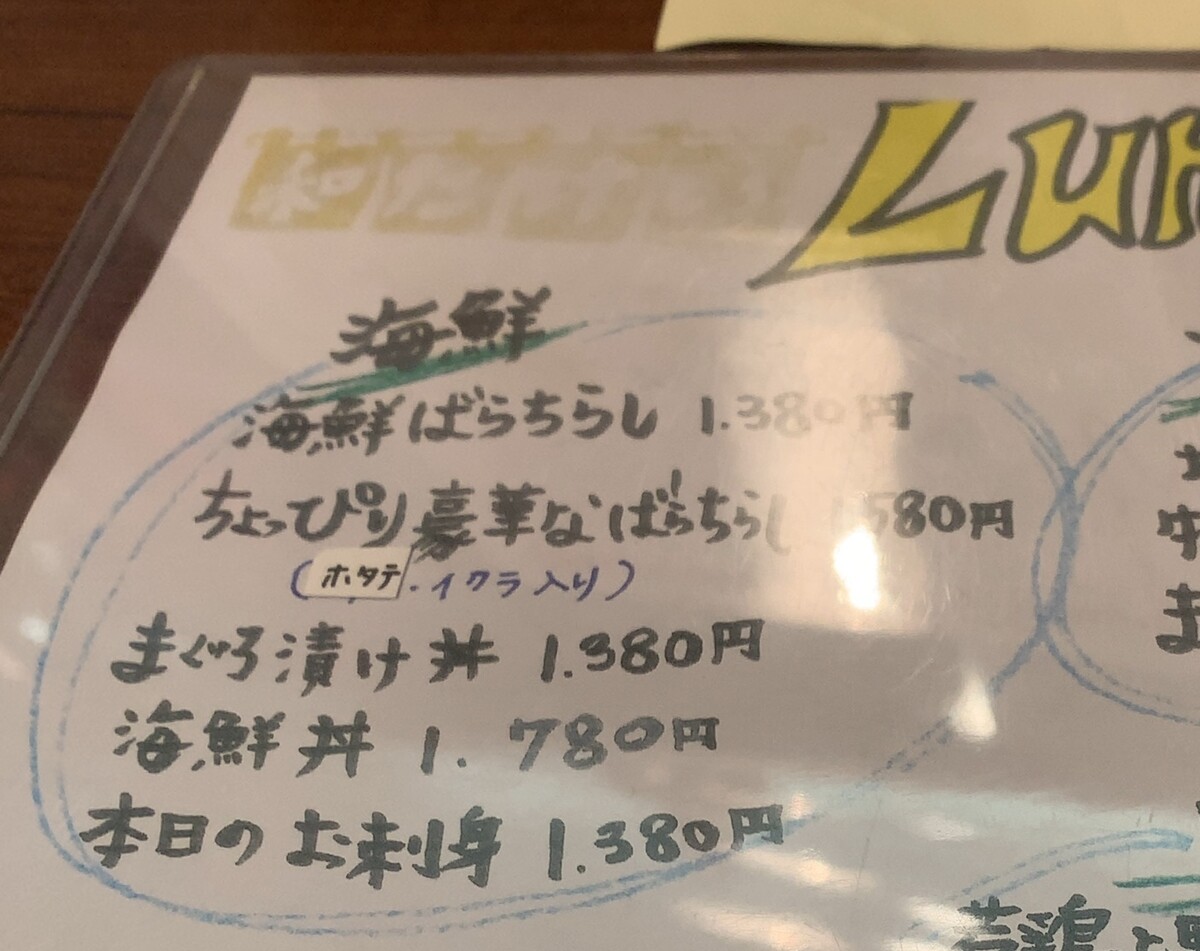 Lun
海鮮
海鮮ばらちらし 1.380円
ちょっぴり豪華なばらちらし 1580円
(ホタテ・イクラ入り)
まぐろ漬け丼 1.380円
海鮮丼 1.780円
本日のお刺身 1.380円
若鶏と